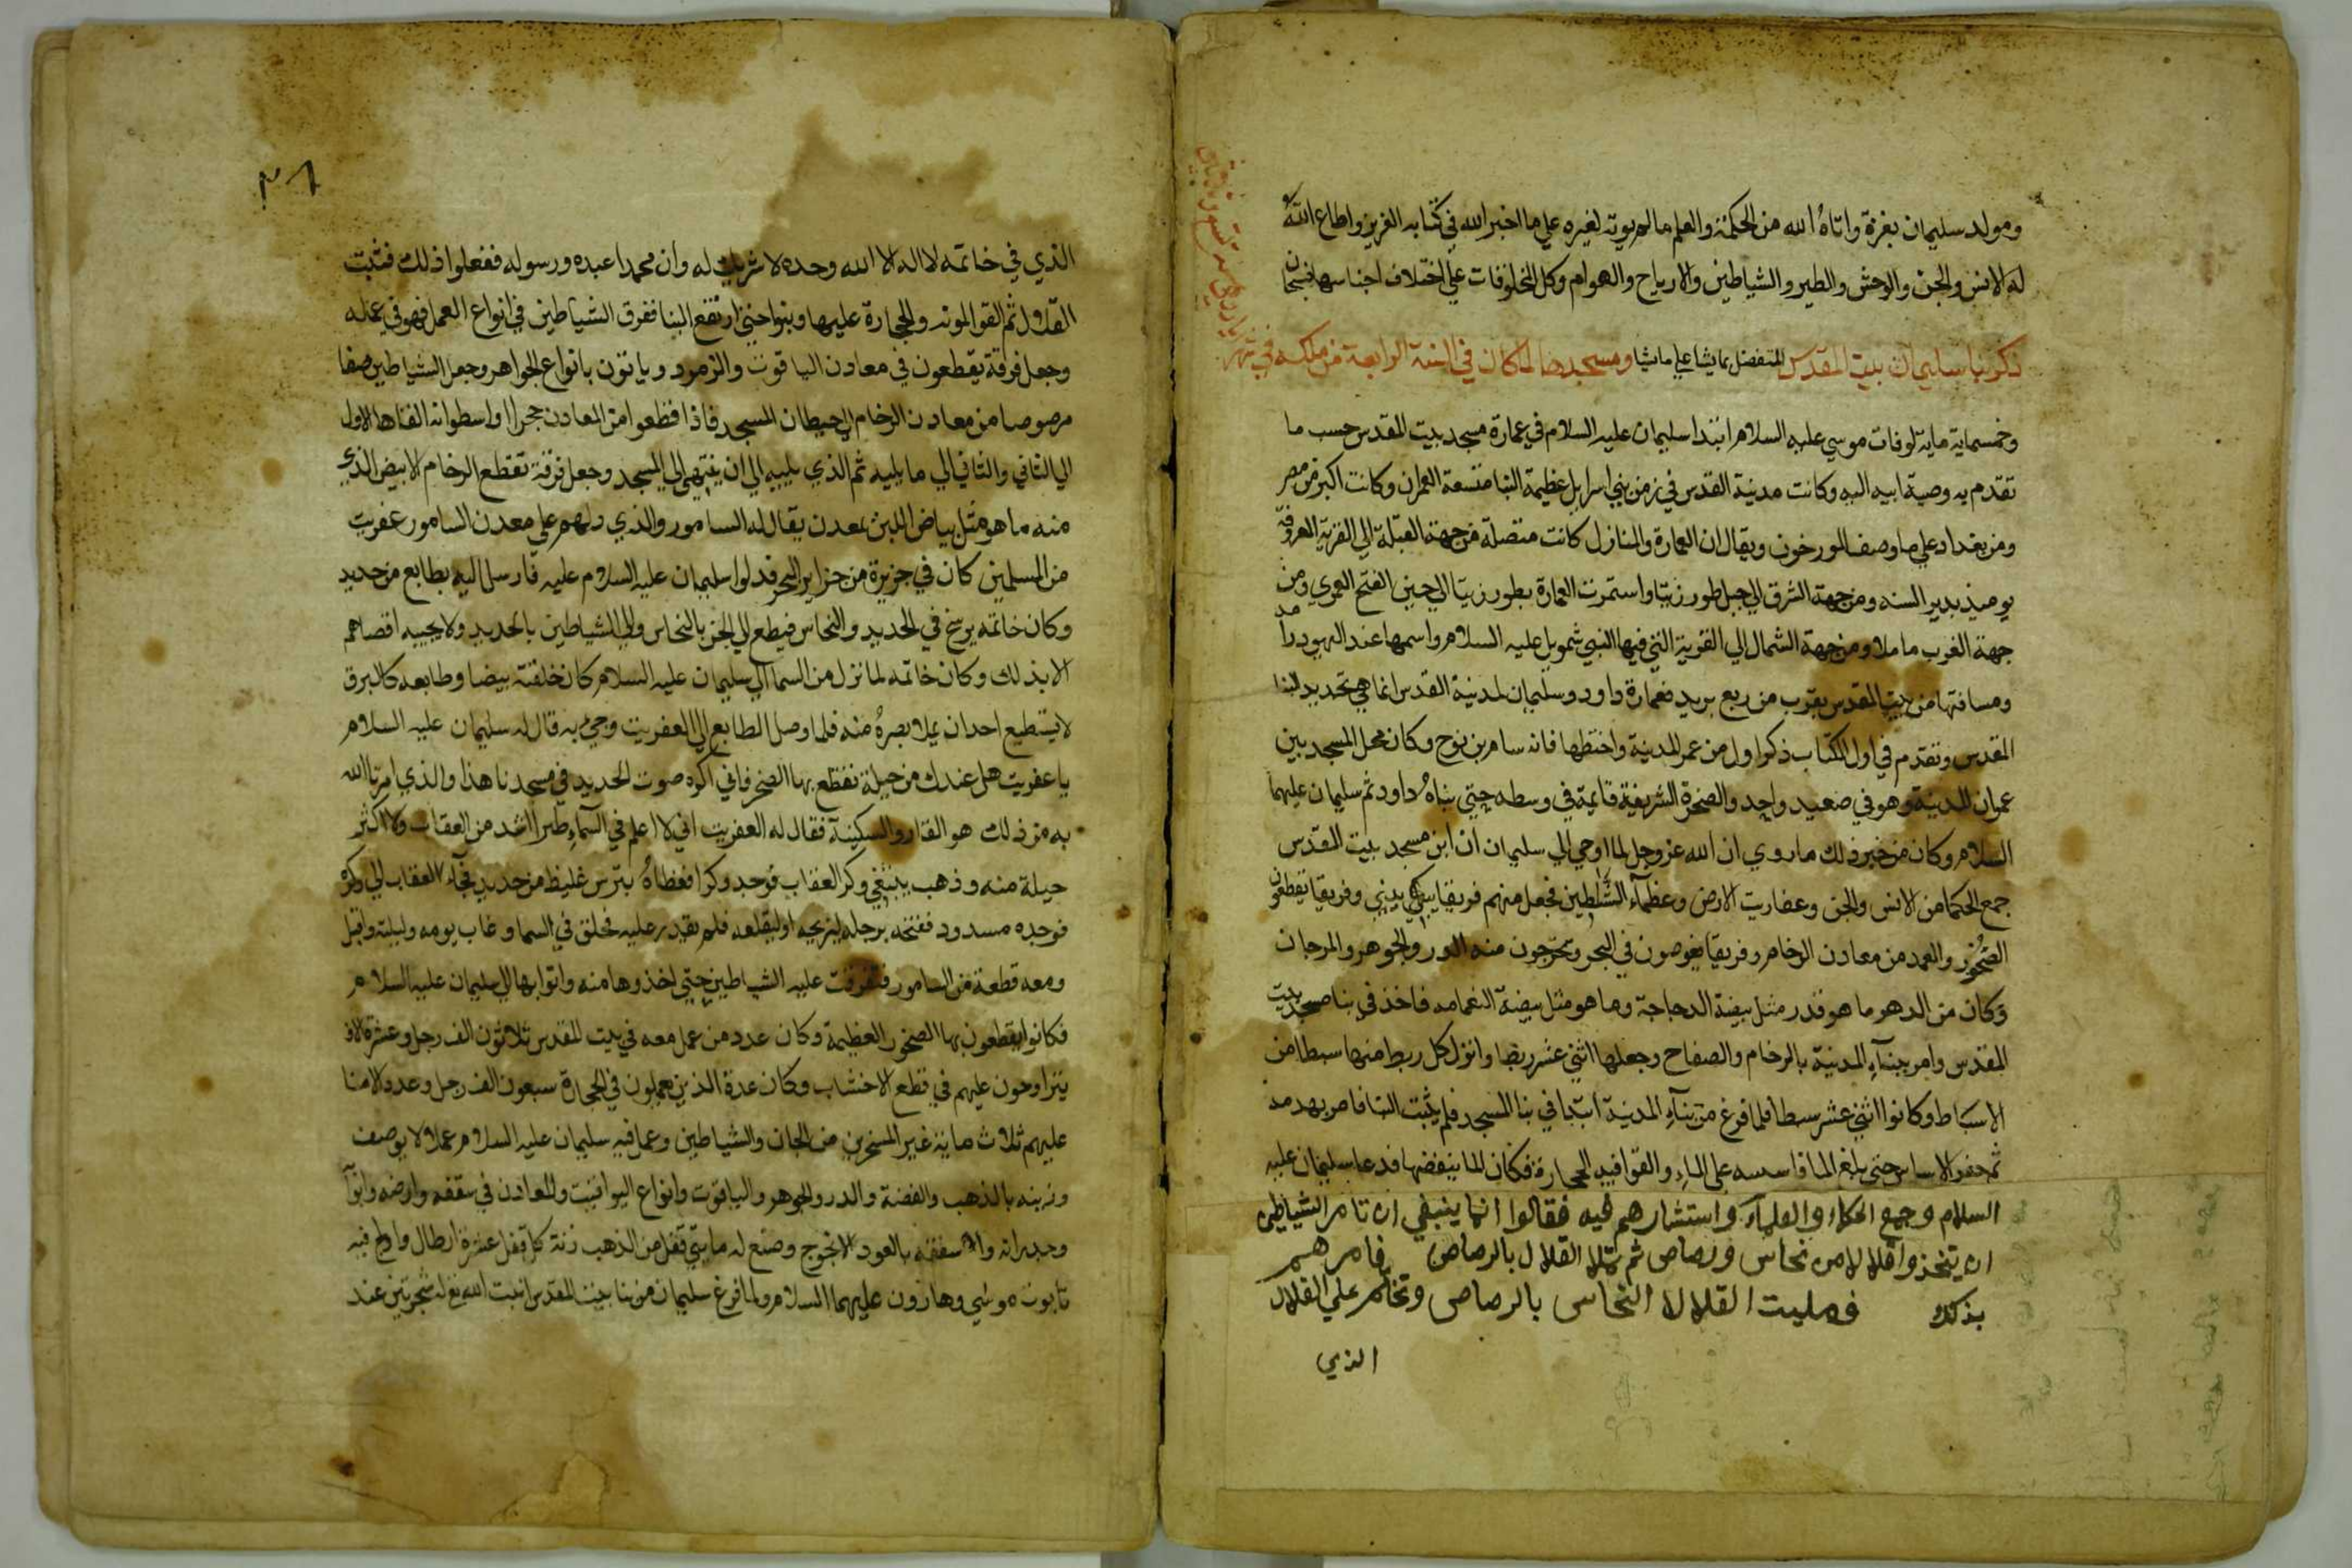 ومولد سليمان بغزة واتاه الله من الحكمة والعلم ما لم يوته لغيره علي ما اخبر الله في كتابه العزيز واطاع الله
له الانس والجن والوحش والطير والشياطين والارياح والهوام وكل المخلوقات علي اختلاف اجناسها فسبحان
ذكر بنا سليمان بيت المقدس المتفضل بما يشا علي ما يشا ومسجدها لما كان في السنة الرابعة من ملكه في شهر
وخمسماية ماية لوفات موسي عليه السلام ابتدا سليمان عليه السلام في عمارة مسجد بيت المقدس حسب ما
تقدم به وصية ابيه اليه وكانت مدينة القدس في زمن بني اسرايل عظيمة البنا متسعة العمران وكانت اكبر من مصر
ومن بغداد علي ما وصف المورخون ويقال ان العمارة والمنازل كانت متصلة من جهة القبلة الي القرية المعروفة
يوميذ بدير السنه ومن جهة الشرق الي جبل طور زيتا واستمرت العمارة بطور زيتا الي حين الفتح العمري ومن
جهة الغرب ماملا ومن جهة الشمال الي القرية التي فيها النبي شمويل عليه السلام واسمها عند اليهود رامه
ومسافتها من بيت المقدس بقرب من ربع بريد فعمارة داود وسليمان لمدينة القدس انما هي تجديد لبنا
المقدس وتقدم في اول الكتاب ذكر اول من عمر المدينة واختطها فانه سام بن نوح وكان محل المسجد بين
عمران المدينة وهو في صعيد واحد والصخرة الشريفة قايمة في وسطه حتي بناه داود ثم سليمان عليهما
السلام وكان من خبر ذلك ما روي ان الله عز وجل لما اوحي الي سليمان ان ابن مسجد بيت المقدس
جمع الحكما من الانس والجن وعفاريت الارض وعظمآء الشياطين فجعل منهم فريقا يبنون وفريقا يقطعون
الصخور والعمد من معادن الرخام وفريقا يغوصون في البحر ويخرجون منه الدر والجوهر والمرجان
وكان من الدر ما هو قدر مثل بيضة الدجاجة وما هو مثل بيضة النعامه فاخذ في بنا مسجد بيت
المقدس وامر ببنآء المدينة بالرخام والصفاح وجعلها اثني عشر ربضا وانزل كل ربط منها سبطا من
الاسباط وكانوا اثني عشر سبطا فلما فرغ من بنآء المدينة ابتدا في بنا المسجد فلم يثبت البنا فامر بهدمه
ثم حفر الاساس حتي بلغ الما فاسسه علي الماء والقوا فيه الحجارة فكان الما ينبضها فدعا سليمان عليه
السلام وجمع الحكماء والعلماء واستشارهم فيه فقالوا انا ينبغي ان تامر الشياطين
ان يتخذوا قلالا من نحاس ورصاص ثم تملا القلال بالرصاص فامرهم
بذلك فمليت القلال النحاس بالرصاص وتختم علي القلال
الذي
٣٨
الذي في خاتمه لا اله الا الله وحده لا شريك له وان محمدا عبده ورسوله ففعلوا ذلك فثبت
القلال ثم القوا المونه والحجارة عليها وبنوا حتي ارتفع البنا ففرق الشياطين في انواع العمل فهو في عمله
وجعل فرقة يقطعون في معادن الياقوت والزمرد وياتون بانواع الجواهر وجعل الشياطين صفا
مرصوصا من معادن الرخام الي حيطان المسجد فاذا قطعوا من المعادن حجرا او اسطوانه القاها الاول
الي الثاني والثاني الي ما يليه ثم الذي يليه الي ان ينتهي الي المسجد وجعل فرقة تقطع الرخام الابيض الذي
منه ما هو مثل بياض اللبن بمعدن يقال له السامور والذي دلهم علي معدن السامور عفريت
من المسلمين كان في جزيرة من جزاير البحر فدلوا سليمان عليه السلام عليه فارسل اليه بطابع من حديد
وكان خاتمه يرسخ في الحديد والنحاس فيطبع الي الجن بالنحاس والي الشياطين بالحديد ولا يجيبه اقصاهم
الا بذلك وكان خاتمه لما نزل من السما الي سليمان عليه السلام كان خلقته بيضا وطابعه كالبرق
لا يستطيع احد ان يملا بصره منه فلما وصل الطابع الي العفريت وجي به قال له سليمان عليه السلام
يا عفريت هل عندك من حيلة نقطع بها الصخر فاني اكره صوت الحديد في مسجدنا هذا والذي امرنا الله
به من ذلك هو الوقار والسكينة فقال له العفريت اني لا اعلم في السماء طيرا اشد من العقاب ولا اكثر
حيلة منه وذهب يبتغي وكر العقاب فوجد وكرا فغطاه بترس غليظ من حديد فجآء العقاب الي وكره
فوجده مسدود ففتحه برجله ليزيحه او ليقلعه فلم يقدر عليه فحلق في السما وغاب يومه وليلته واقبل
ومعه قطعة من السامور فتفرقت عليه الشياطين حتي اخذوها منه واتوا بها الي سليمان عليه السلام
فكانوا يقطعون بها الصخور العظيمة وكان عدد من عمل معه في بيت المقدس ثلاثون الف رجل وعشرة الاف
يتراوحون عليهم في قطع الاخشاب وكان عدة الذين يعملون في الحجارة سبعون الف رجل وعدد الامنا
عليهم ثلاث ماية غير المسخرين من الجان والشياطين وعمل فيه سليمان عليه السلام عملا لا يوصف
وزينه بالذهب والفضة والدر والجوهر والياقوت وانواع اليواقيت والمعادن في سقفه وارضه وابوآبه
وجدرانه وسقفه بالعود الانجوج وصنع له مايتي قفل من الذهب زنة كل قفل عشرة ارطال واولج فيه
تابوت موسي وهارون عليهما السلام ولما فرغ سليمان من بنا بيت المقدس انبت الله تع له شجرتين عند